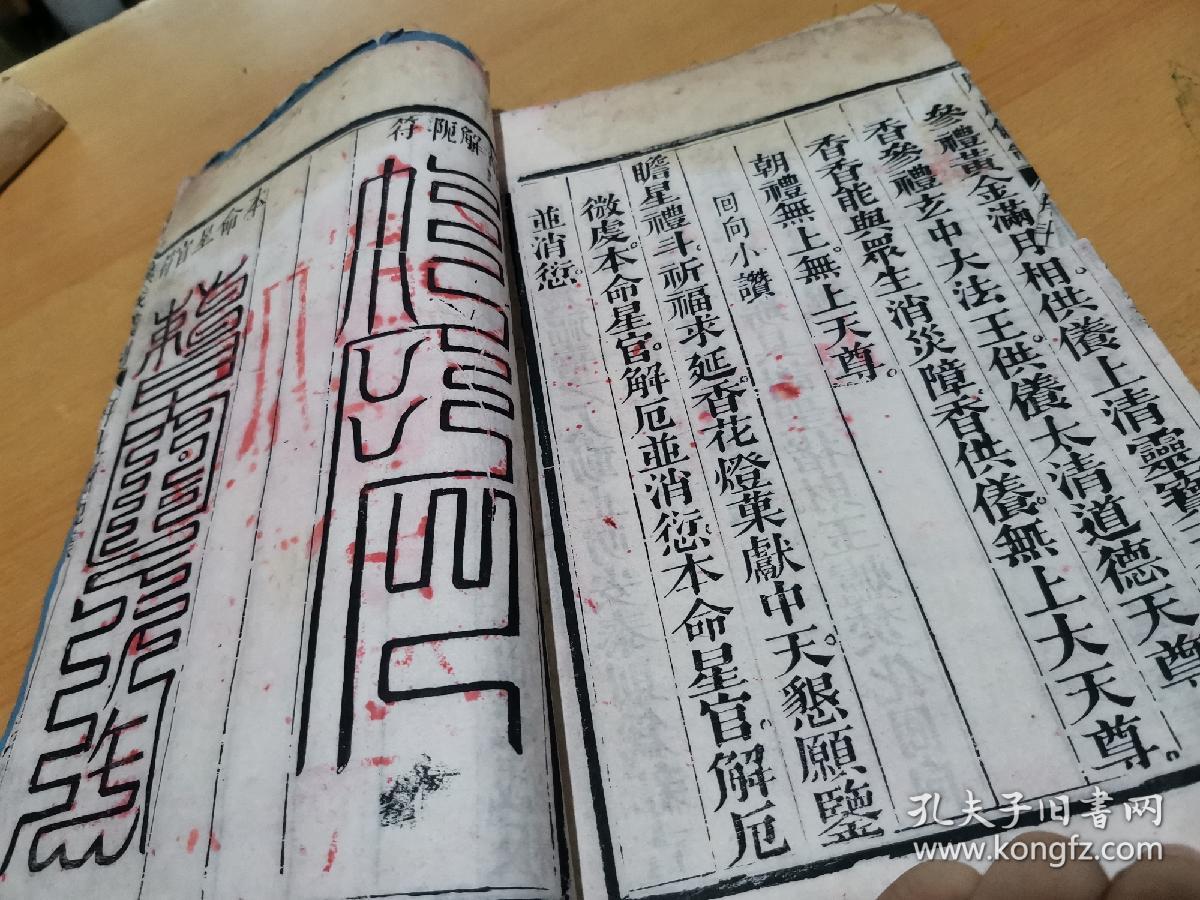 參禮黃金滿月相。供養上清靈寶
香參禮玄中大法王。供養太清道德天尊
香香能與眾生消災障。香供養。無上大天尊。
朝禮無上。無上天尊。
回向小讚
瞻星禮斗。祈福求延。香花燈菓獻中天。懇願鑒
微虔。本命星官。解厄並消愆。本命星官。解厄
並消愆。
解阨符
本命星官符
孔夫子旧書网
www.kongfz.com